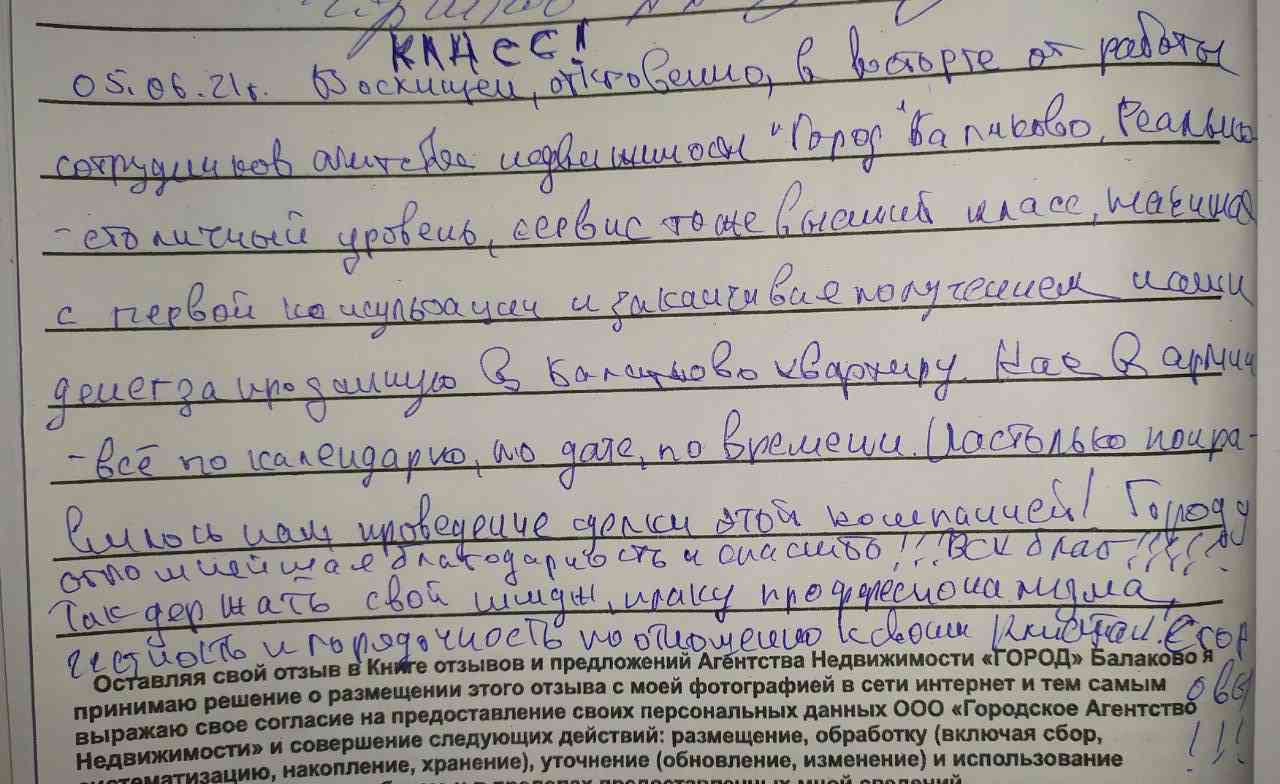 КЛАСС!
05.06.21г. Восхищен, откровенно, в восторге от работы
сотрудников агентства недвижимости "Город" Балаково. Реально
- столичный уровень, сервис тоже высший класс, начиная
с первой консультации и заканчивая получением нами
денег за проданную в Балаково квартиру. Как в армии
- всё по календарю, по дате, по времени. Настолько понра-
вилось нам проведение сделки этой компанией! Городу
огромнейшая благодарность и спасибо!!! Всех благ!!!!!
Так держать свой имидж, планку профессионализма,
честность и порядочность по отношению к своим клиентам! Егор
овы
!!!
Оставляя свой отзыв в Книге отзывов и предложений Агентства Недвижимости «ГОРОД» Балаково я
принимаю решение о размещении этого отзыва с моей фотографией в сети интернет и тем самым
выражаю свое согласие на предоставление своих персональных данных ООО «Городское Агентство
Недвижимости» и совершение следующих действий: размещение, обработку (включая сбор,
систематизацию, накопление, хранение), уточнение (обновление, изменение) и использование